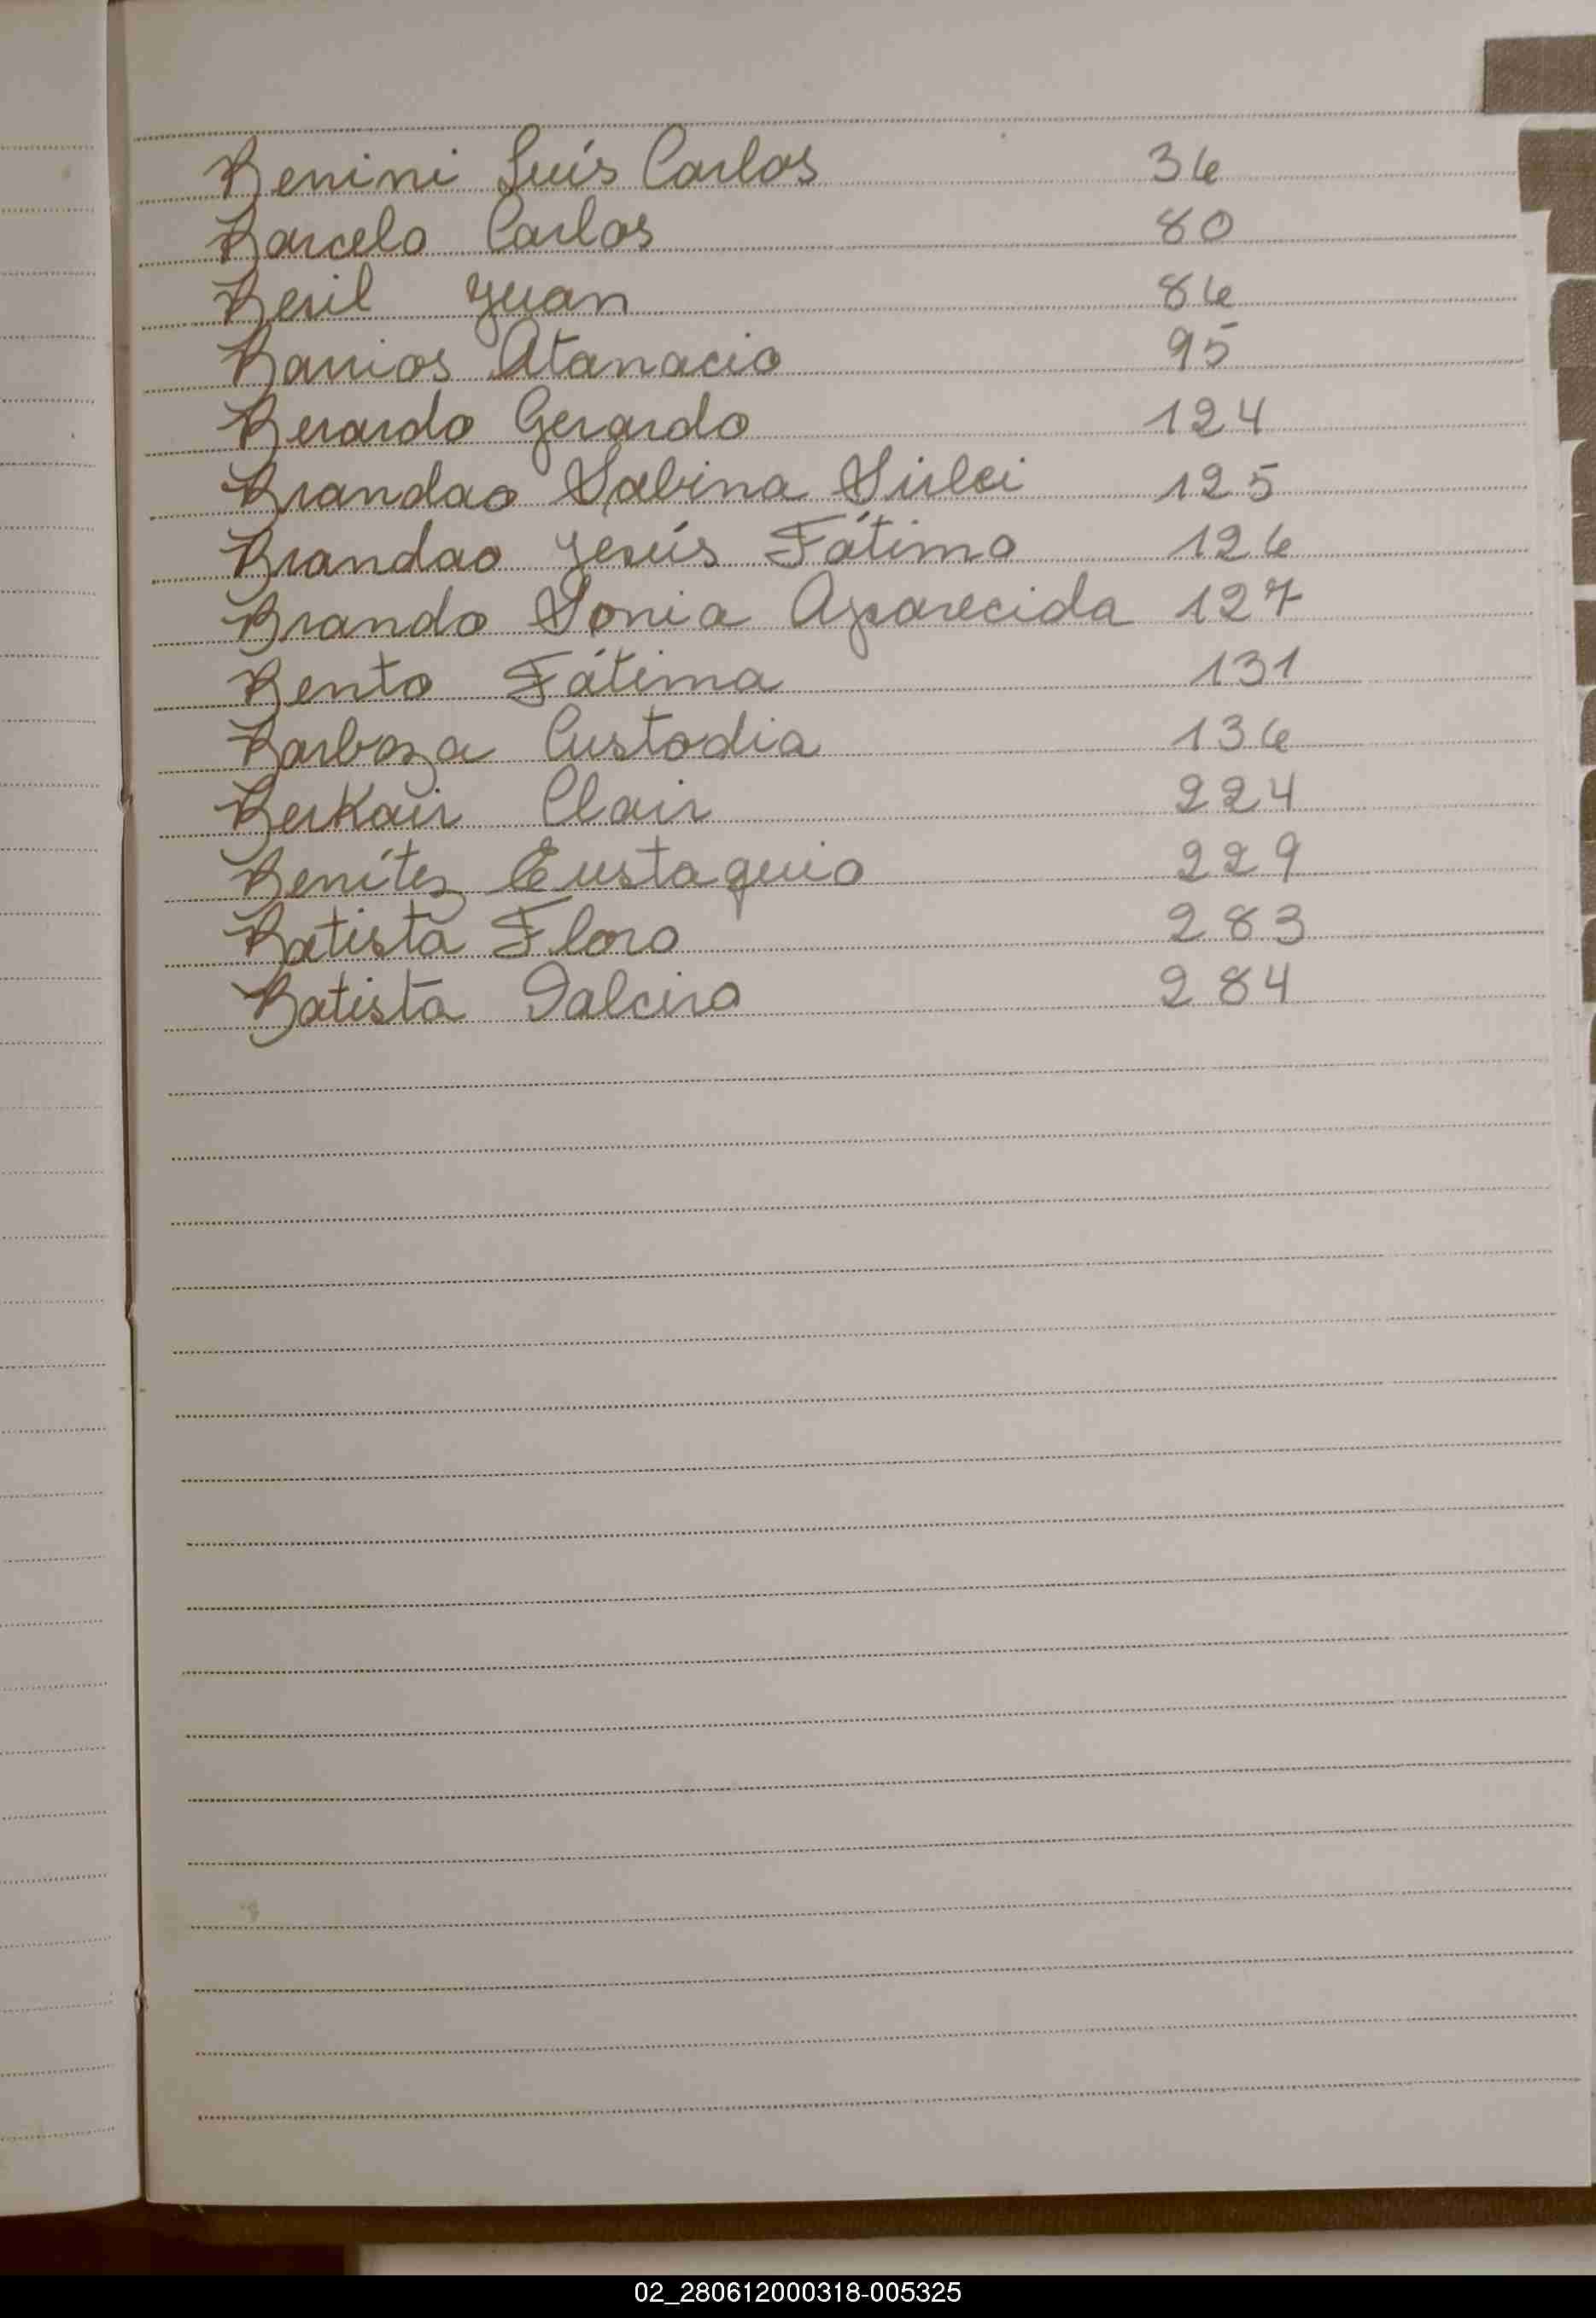 Benini Luís Carlos 36
Barcelo Carlos 80
Beril Juan 86
Barrios Atanacio 95
Berardo Gerardo 124
Brandao Sabina Sirlei 125
Brandao Jesús Fátima 126
Brando Sonia Aparecida 127
Bento Fátima 131
Barboza Custodia 136
Berkair Clair 224
Benítez Eustaquio 229
Batista Floro 283
Batista Dalciro 284
02_280612000318-005325